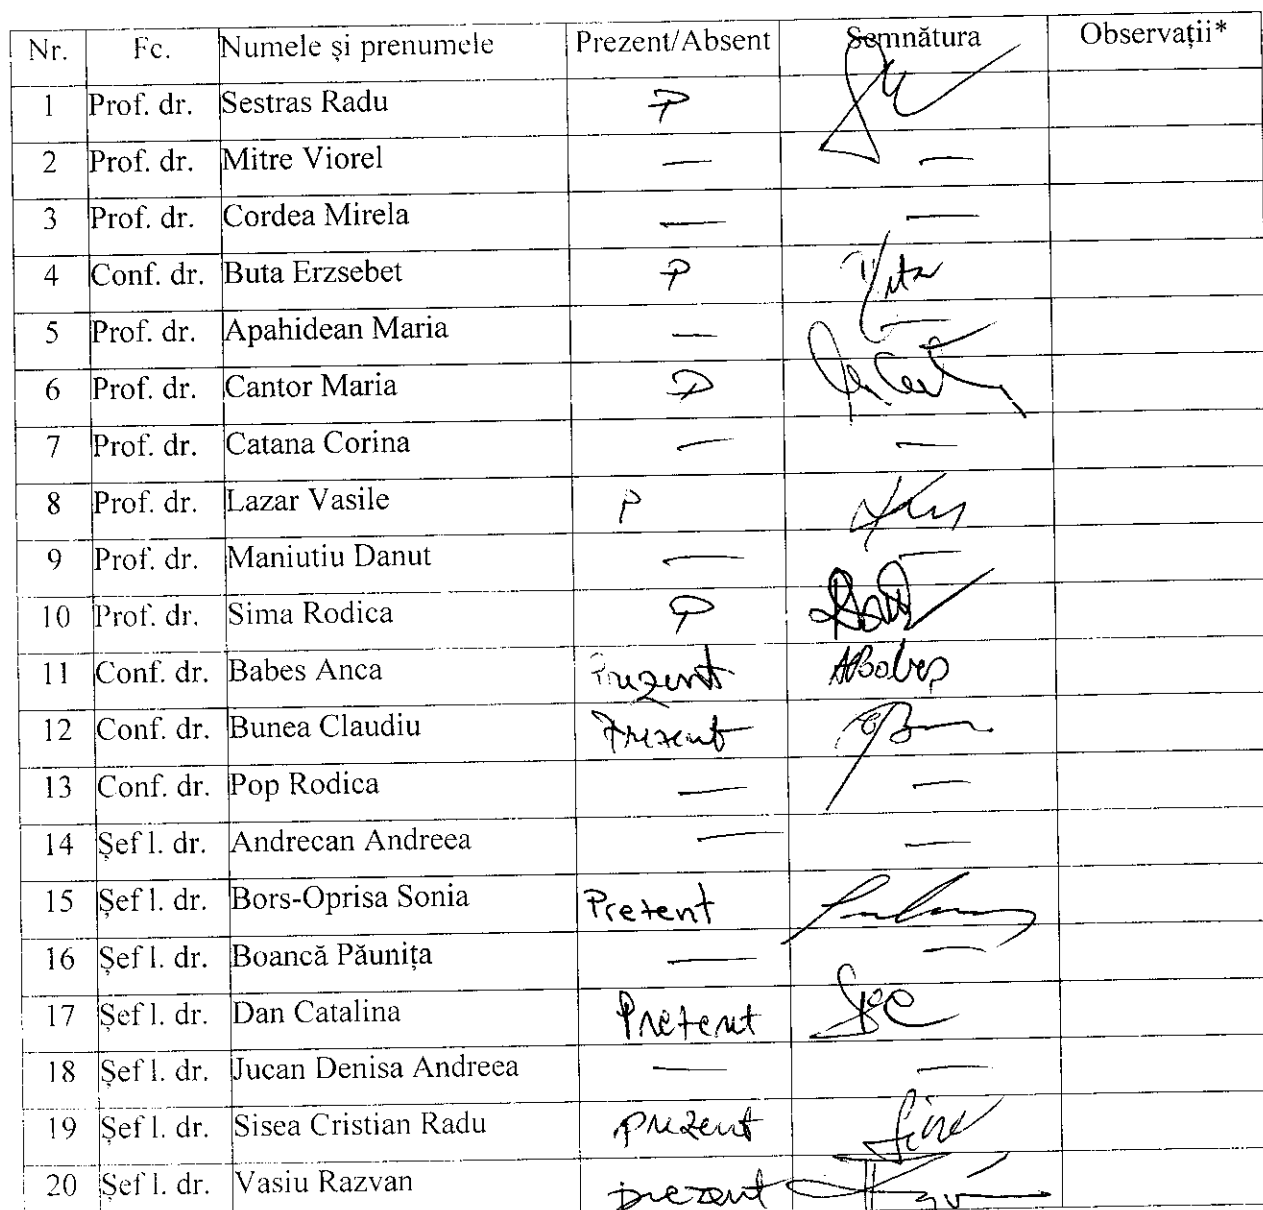 Nr. Fc. Numele și prenumele Prezent/Absent Semnătura Observații*
1 Prof. dr. Sestras Radu P
2 Prof. dr. Mitre Viorel — —
3 Prof. dr. Cordea Mirela — —
4 Conf. dr. Buta Erzsebet P
5 Prof. dr. Apahidean Maria — —
6 Prof. dr. Cantor Maria P
7 Prof. dr. Catana Corina — —
8 Prof. dr. Lazar Vasile P
9 Prof. dr. Maniutiu Danut — —
10 Prof. dr. Sima Rodica P
11 Conf. dr. Babes Anca Prezent ABabeș
12 Conf. dr. Bunea Claudiu Prezent
13 Conf. dr. Pop Rodica — —
14 Șef l. dr. Andrecan Andreea — —
15 Șef l. dr. Bors-Oprisa Sonia Prezent
16 Șef l. dr. Boancă Păunița — —
17 Șef l. dr. Dan Catalina Prezent
18 Șef l. dr. Jucan Denisa Andreea — —
19 Șef l. dr. Sisea Cristian Radu prezent
20 Șef l. dr. Vasiu Razvan prezent